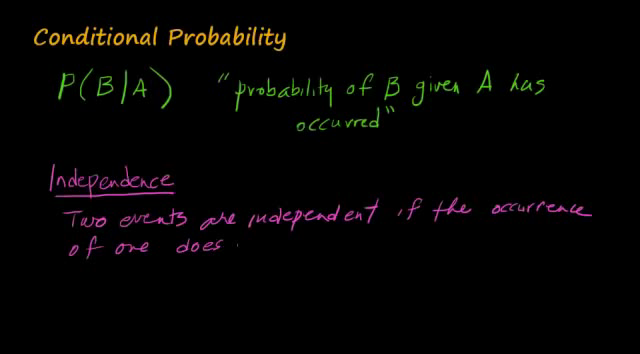 Conditional Probability
P(B|A) "probability of B given A has
occurred"
Independence
Two events are independent if the occurrence
of one does